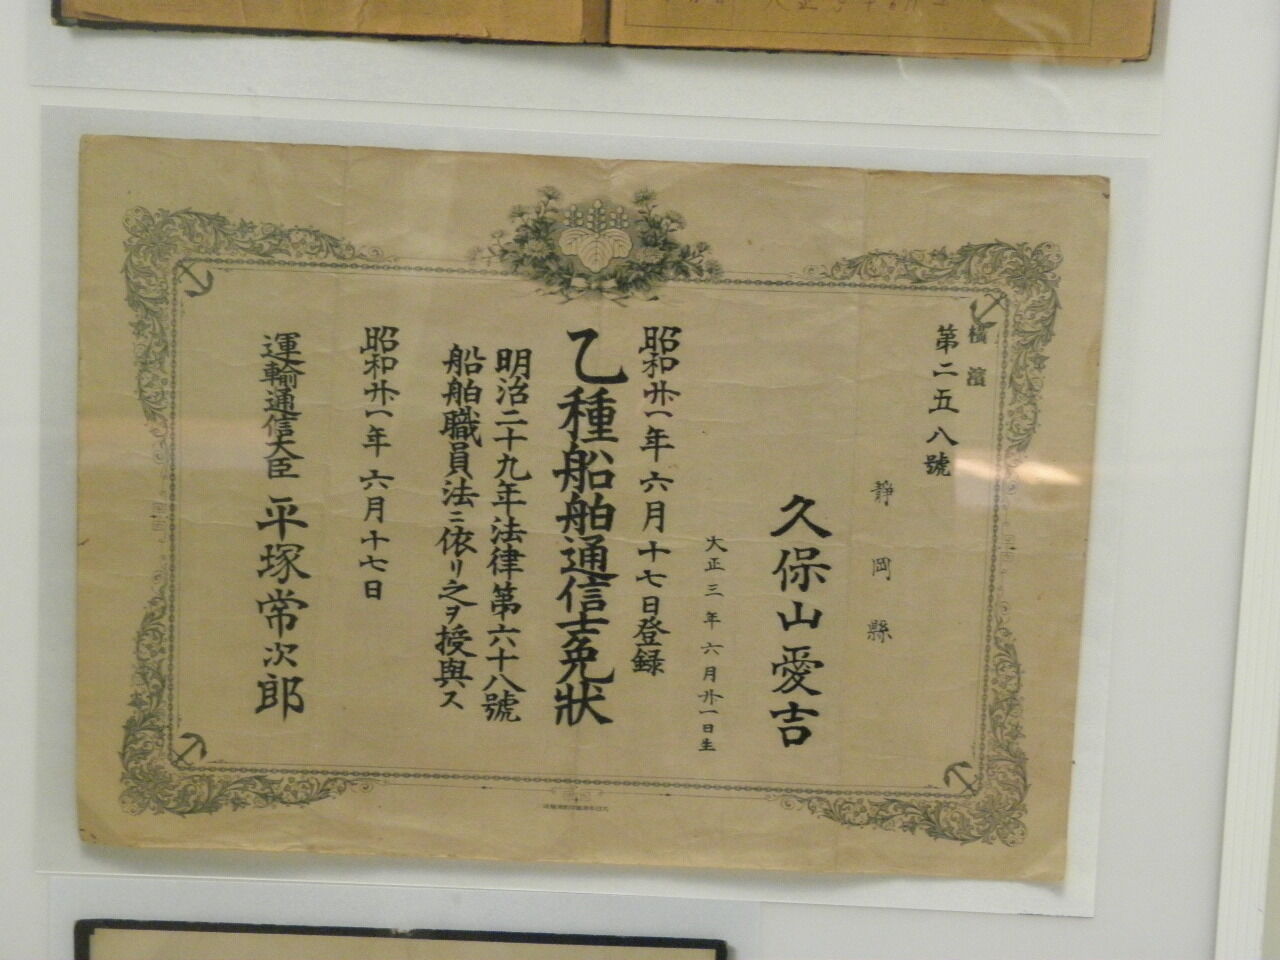 大正
橫濱
第二五八號
靜岡縣
久保山愛吉
大正三年六月廿一日生
昭和廿一年六月十七日登録
乙種船舶通信士免狀
明治二十九年法律第六十八號
船舶職員法ニ依リ之ヲ授與ス
昭和廿一年六月十七日
運輸通信大臣 平塚常次郎